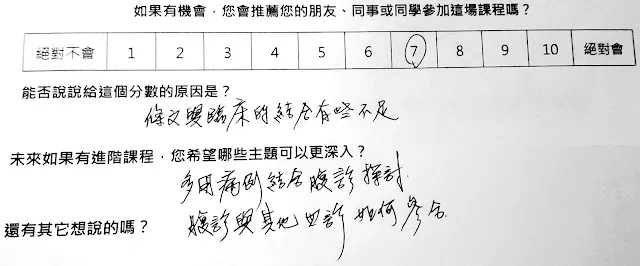 如果有機會，您會推薦您的朋友、同事或同學參加這場課程嗎？
絕對不會 1 2 3 4 5 6 7 8 9 10 絕對會
能否說說給這個分數的原因是？
條文與臨床的結合有些不足
未來如果有進階課程，您希望哪些主題可以更深入？
多用病例結合腹診探討.
還有其它想說的嗎？ 腹診與其他四診如何參合.